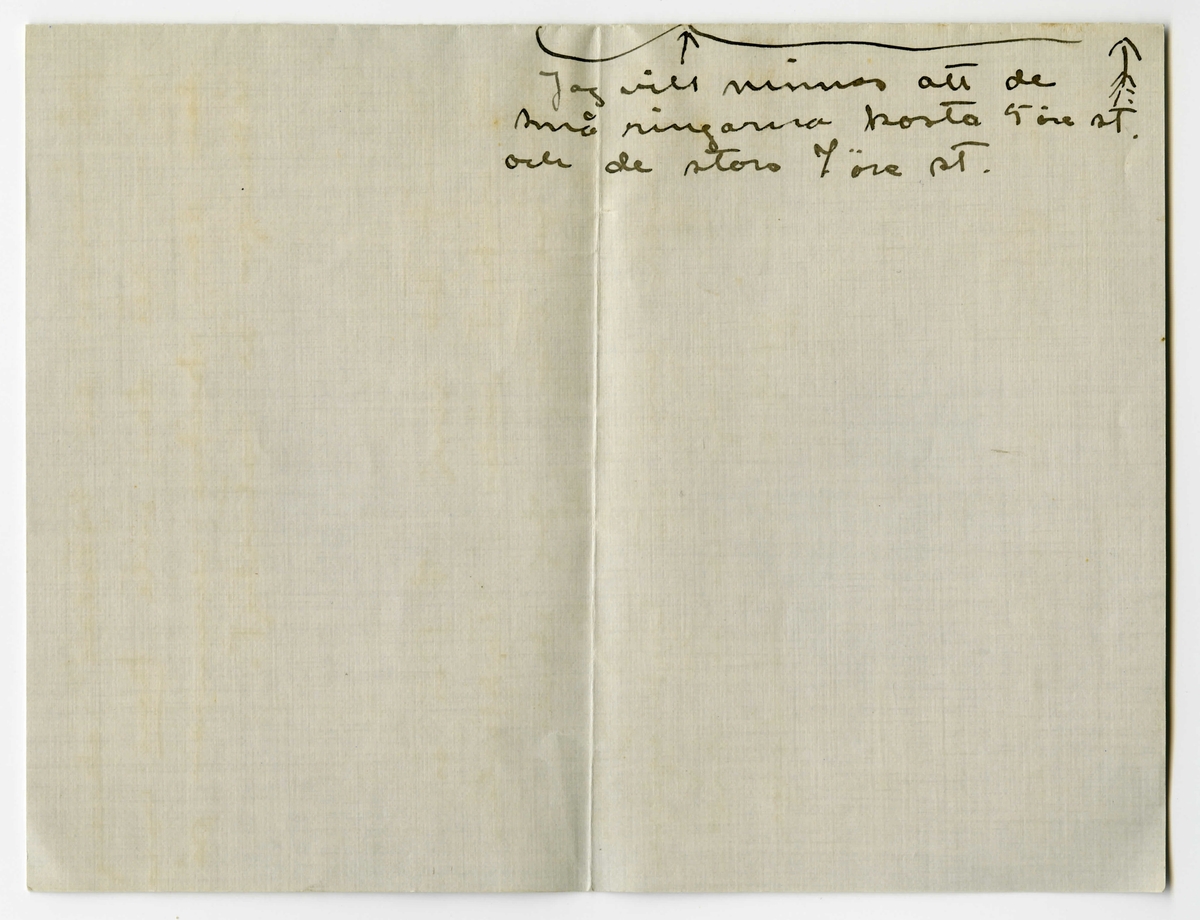 Jag vill minnas att de
små ringarna kosta 5 öre st.
och de stora 7 öre st.